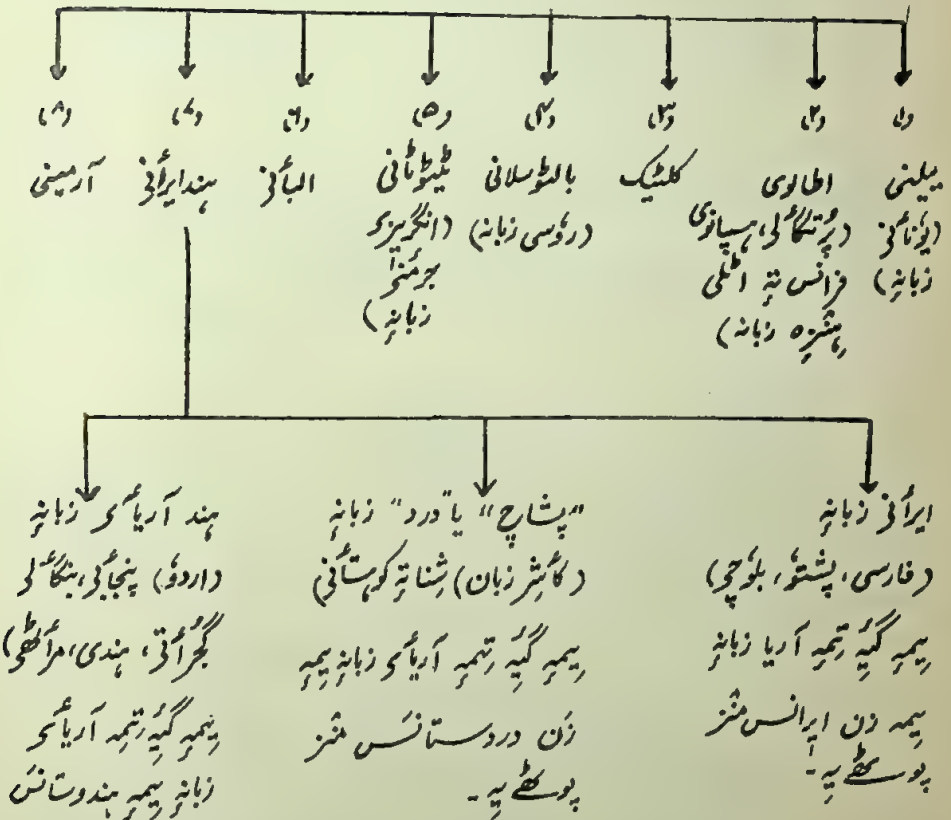 (۱) (۲) (۳) (۴) (۵) (۶) (۷) (۸)
ہیلنی
(یوٗنٲنؠ
زبانہٕ)
اطالوی
(پُرتگٲلؠ، ہسپانوی
فرانس تہٕ اٹلی
ہٕنٛزہ زبانہ)
کلٹیک
بالٹوسلانی
(روٗسی زبانہ)
ٹیوٹانی
(انگریزی
جرمنی
زبانہٕ)
البانؠ
ہندایرٲنؠ
آرمینی
ایرٲنؠ زبانہٕ
(فارسی، پشتوٗ، بلوٗچی)
یِمہٕ گیہِ تِمہٕ آریا زبانہٕ
یِمہ زن ایرانس منٛز
پوٚٹھے یہِ۔
"پشاچ" یا "درد" زبانہٕ
(کٲشِر زبان) شِنا تہٕ کوہستٲنؠ)
یِمہٕ گیہِ تِمہٕ آریٲیی زبانہٕ یِمہٕ
زن دردستانَس منٛز
پوٚٹھے یہِ۔
ہند آریٲیی زبانہٕ
(اردوٗ) پنجٲبؠ، بنگٲلؠ
گُجرٲتؠ، ہندی، مرٲٹھی)
یِمہٕ گیہِ تِمہٕ آریٲیی
زبانہٕ یِمہٕ ہندوستانَس